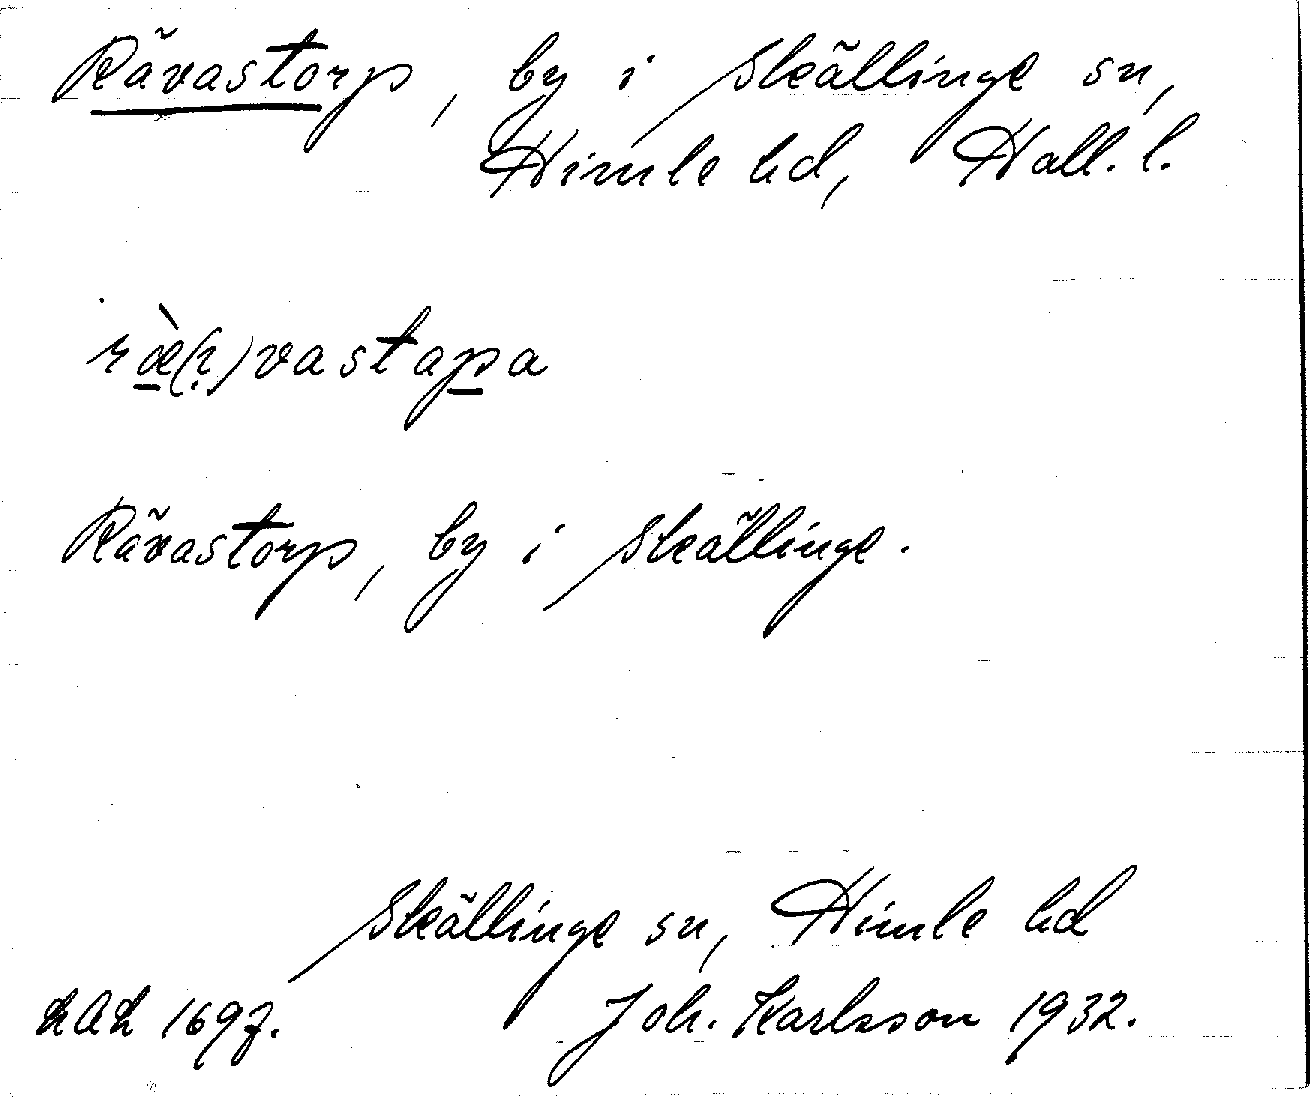 Rävastorp, by i Skällinge sn,
Himle hd, Hall. l.
ræ̀(?)vastapa
Rävastorp, by i Skällinge.
Skällinge sn, Himle hd
LAL 1697. Joh. Karlsson 1932.